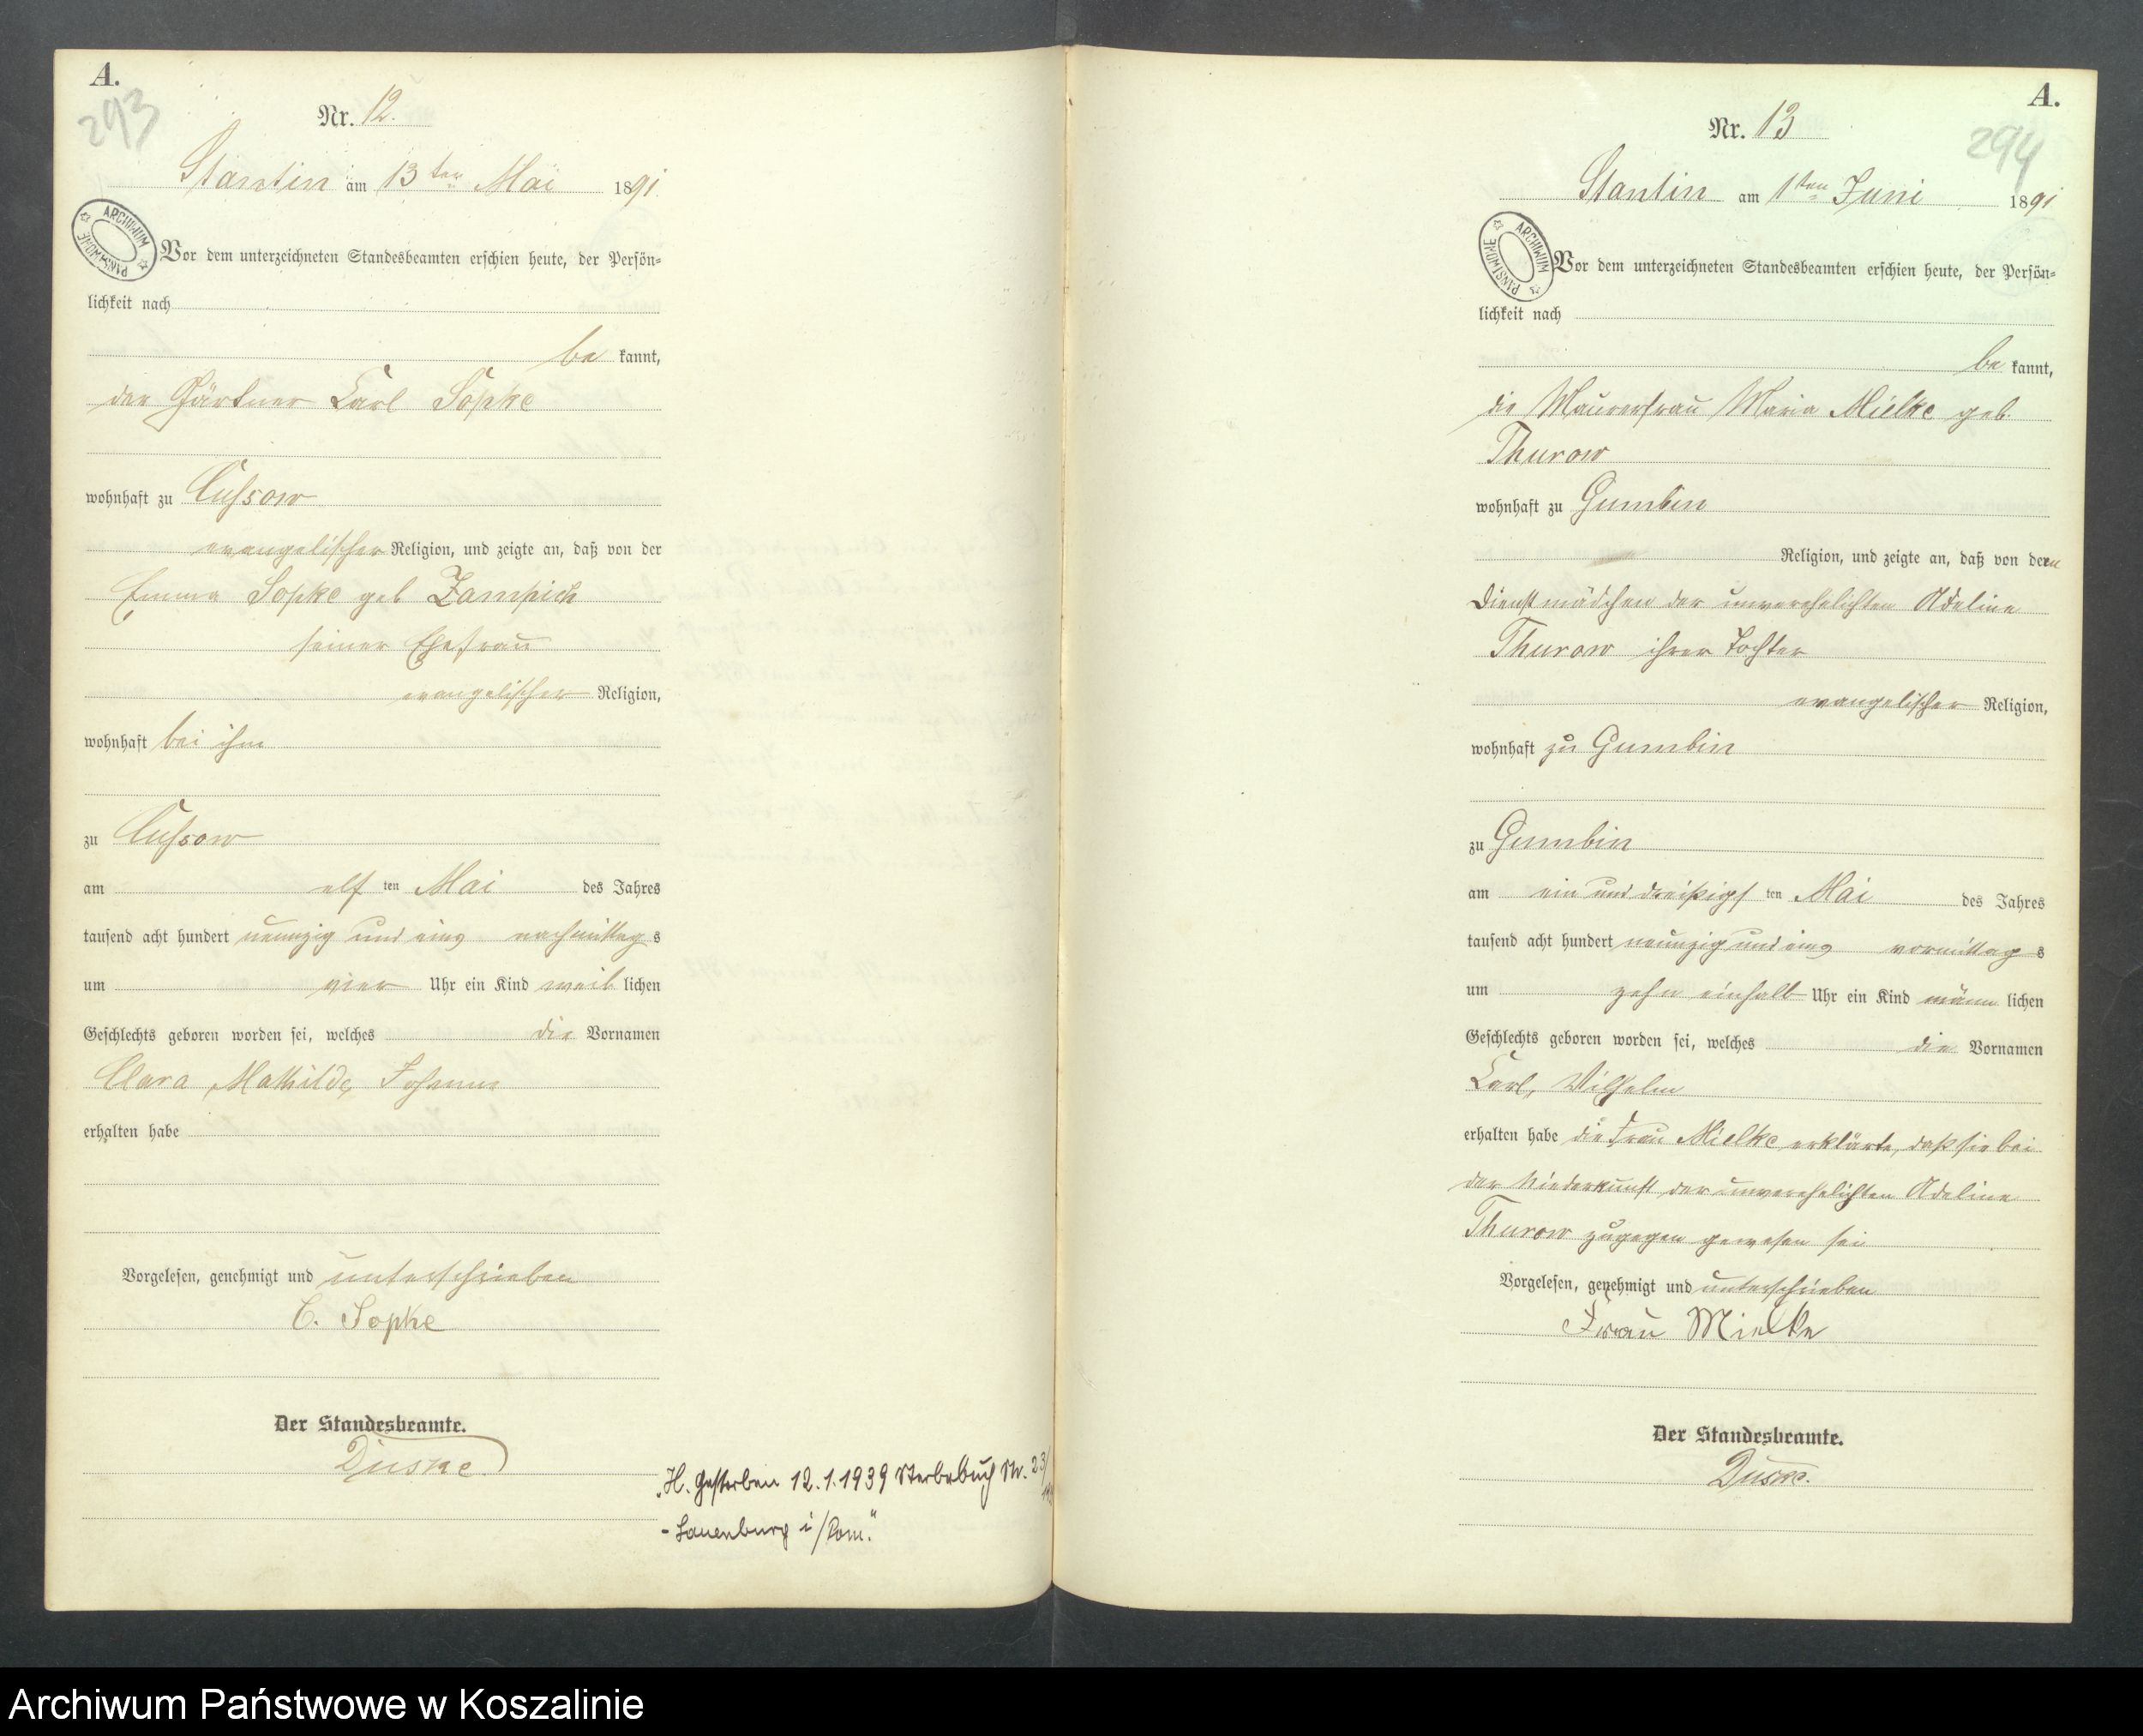 A.
293
Nr. 12.
Stantin am 13ten Mai 1891.
ARCHIWUM PAŃSTWOWE
Vor dem unterzeichneten Standesbeamten erschien heute, der Persön=
lichkeit nach
be kannt,
der Gärtner Carl Sopke
wohnhaft zu Cussow
evangelischer Religion, und zeigte an, daß von der
Emma Sopke geb
seiner Ehefrau
evangelischer Religion,
wohnhaft bei ihm
zu Cussow
am elf ten Mai des Jahres
tausend acht hundert neunzig und eins nachmittag s
um vier Uhr ein Kind weib lichen
Geschlechts geboren worden sei, welches die Vornamen
Clara, Mathilde, Johanne
erhalten habe
Vorgelesen, genehmigt und unterschrieben
C. Sopke
Der Standesbeamte.
„H. Gestorben 12.1.1939 Sterbebuch Nr. 23/
- Lauenburg i/Pom."
A.
294
Nr. 13
Stantin am 1ten Juni 1891
ARCHIWUM PAŃSTWOWE
Vor dem unterzeichneten Standesbeamten erschien heute, der Persön=
lichkeit nach
be kannt,
die Maurerfrau Maria Mielke geb.
Thurow
wohnhaft zu Gumbin
Religion, und zeigte an, daß von dem
Dienstmädchen der unverehelichten Adeline
Thurow ihrer Tochter
evangelischer Religion,
wohnhaft zu Gumbin
zu Gumbin
am ein und dreißigs ten Mai des Jahres
tausend acht hundert neunzig und eins vormittag s
um zehn einhalb Uhr ein Kind männ lichen
Geschlechts geboren worden sei, welches die Vornamen
Carl, Wilhelm
erhalten habe die Frau Mielke erklärte, daß sie bei
der Niederkunft der unverehelichten Adeline
Thurow zugegen gewesen sei
Vorgelesen, genehmigt und unterschrieben
Frau Mielke
Der Standesbeamte.
Archiwum Państwowe w Koszalinie